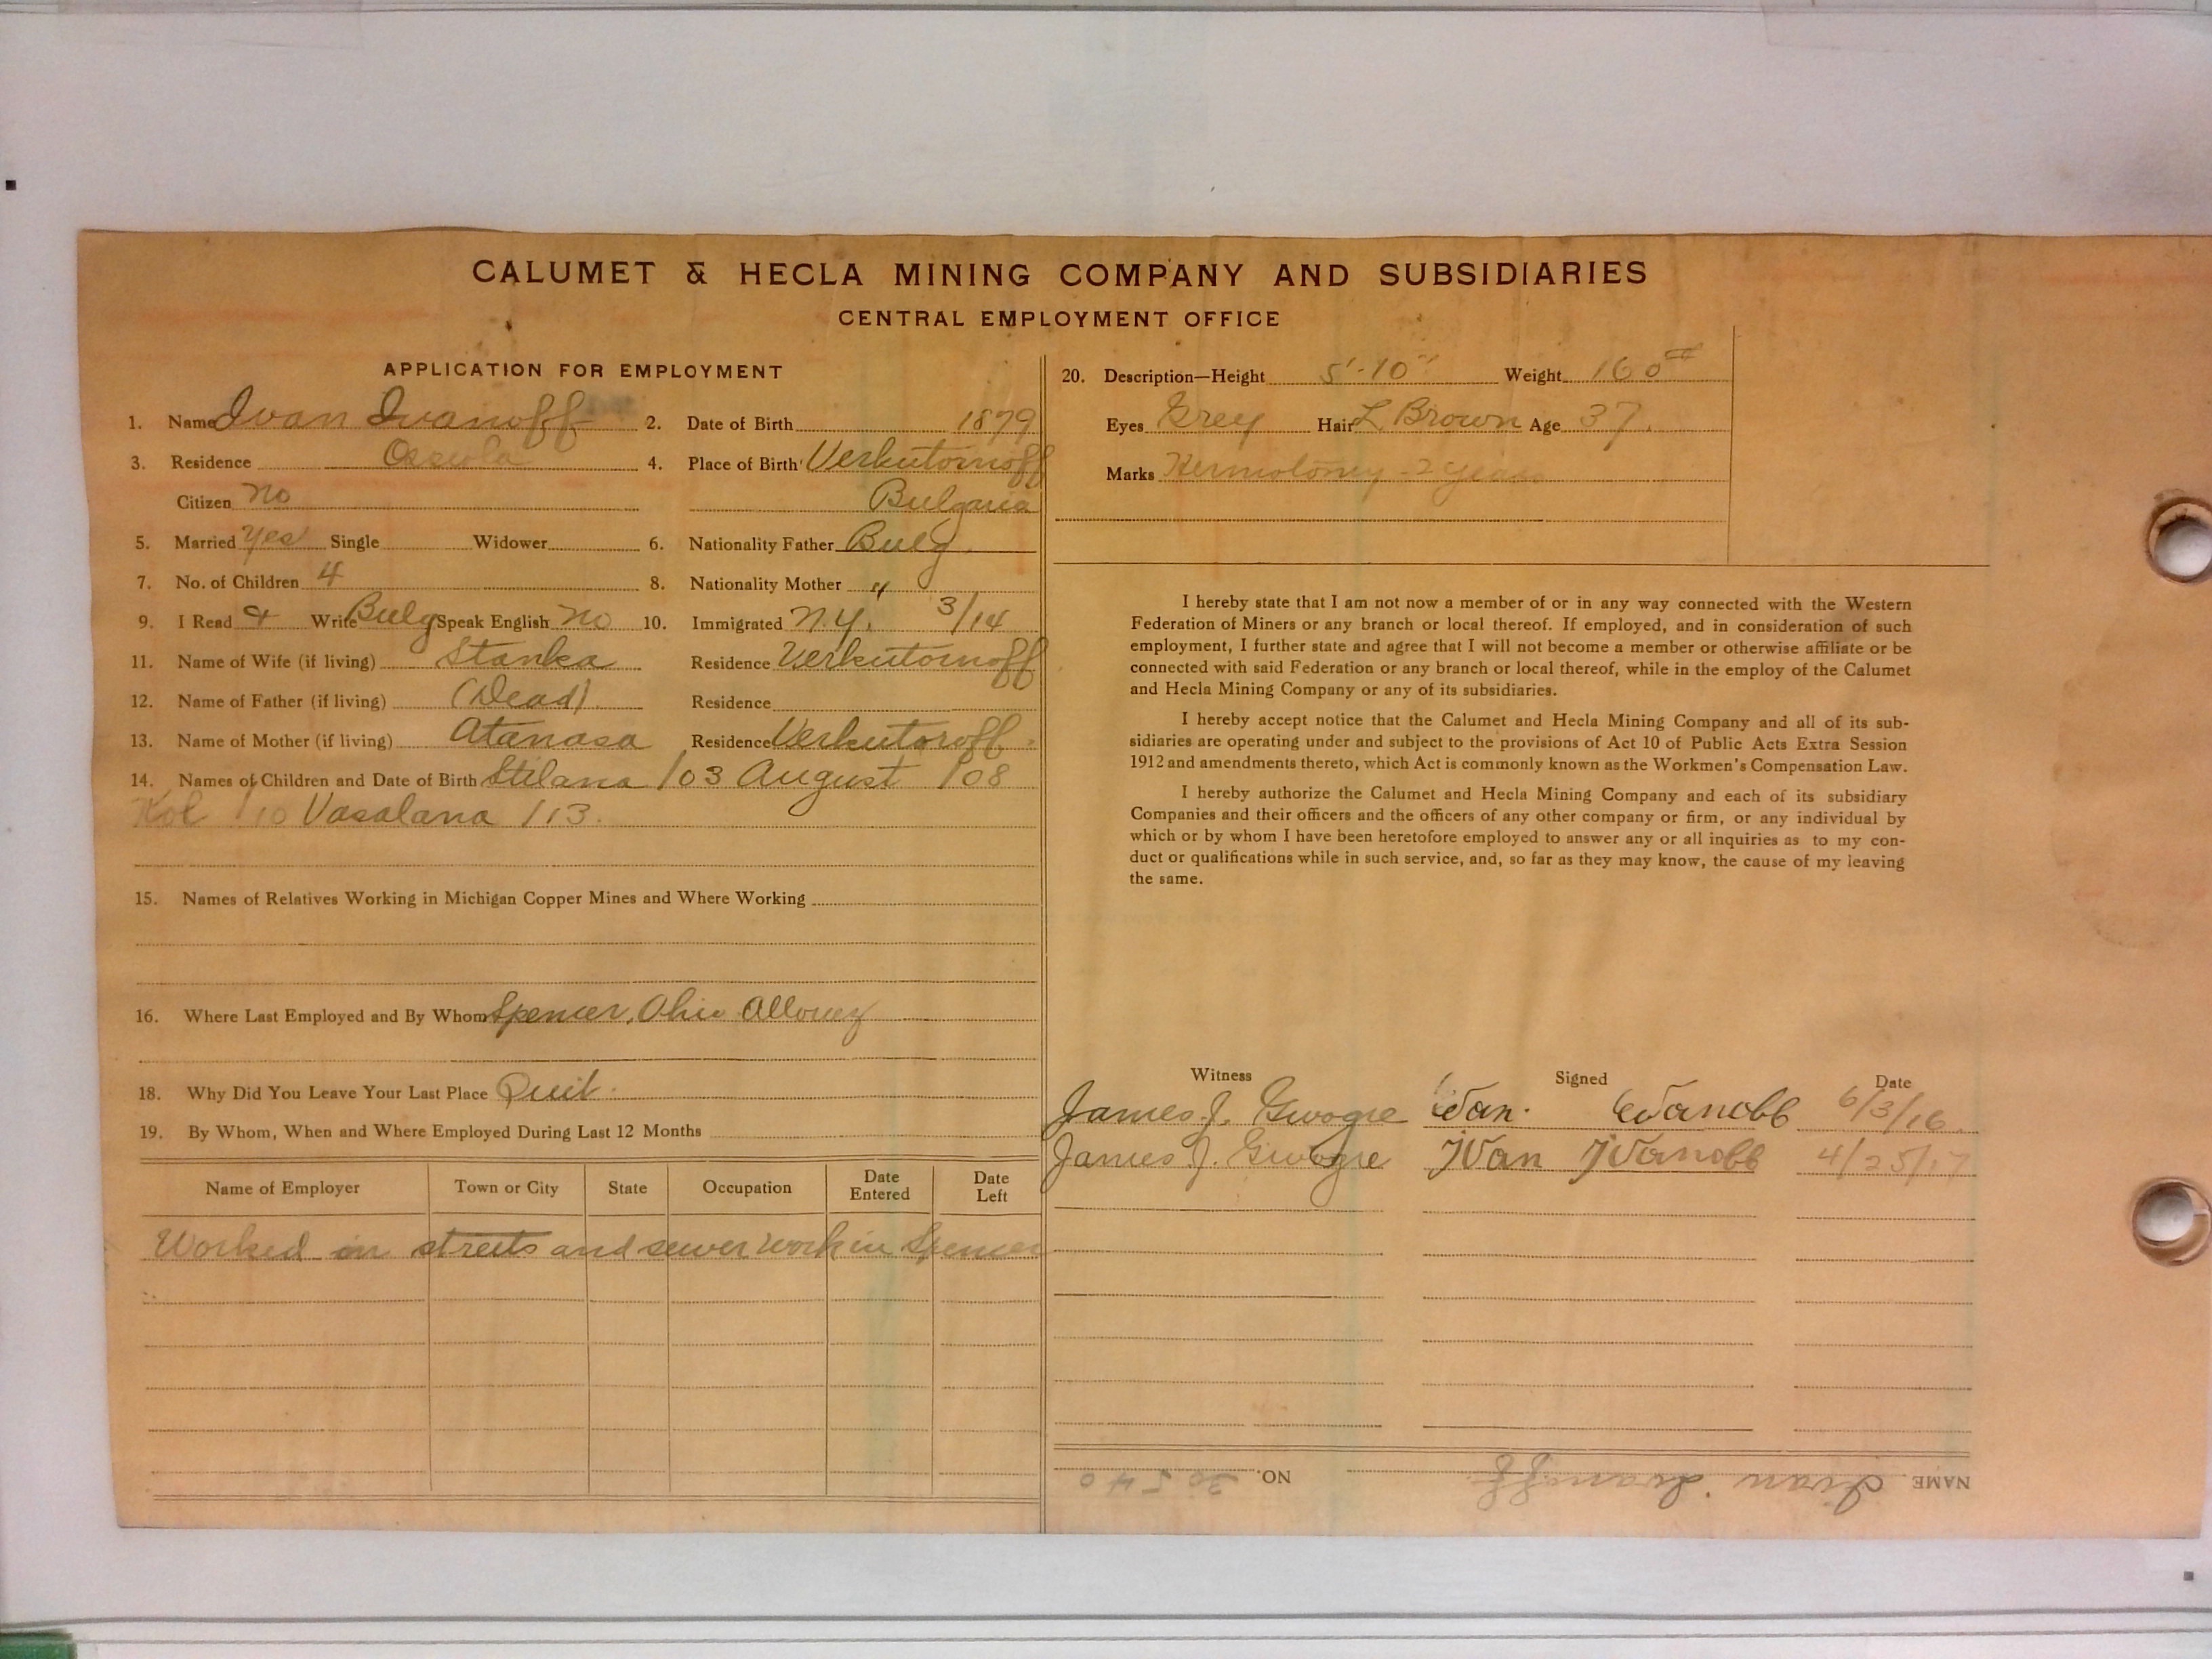 CALUMET & HECLA MINING COMPANY AND SUBSIDIARIES
CENTRAL EMPLOYMENT OFFICE
APPLICATION FOR EMPLOYMENT
1. Name Ivan Ivanoff 2. Date of Birth 1879
3. Residence Osceola 4. Place of Birth Verkutornoff
Citizen no Bulgaria
5. Married yes Single Widower 6. Nationality Father Bulg.
7. No. of Children 4 8. Nationality Mother "
9. I Read & Write Bulg Speak English no 10. Immigrated N.Y. 3/14
11. Name of Wife (if living) Stanka Residence Verkutornoff
12. Name of Father (if living) (Dead) Residence
13. Name of Mother (if living) Atanasa Residence Verkutoroff
14. Names of Children and Date of Birth Stilana /03 August /08
Kol /10 Vasalana /13.
15. Names of Relatives Working in Michigan Copper Mines and Where Working
16. Where Last Employed and By Whom Spencer, Ohio Allouez
18. Why Did You Leave Your Last Place Quit.
19. By Whom, When and Where Employed During Last 12 Months
Name of Employer Town or City State Occupation Date Entered Date Left
Worked on streets and sewer work in Spencer
20. Description—Height 5'-10" Weight 160#
Eyes Grey Hair L Brown Age 37.
Marks 2 years
I hereby state that I am not now a member of or in any way connected with the Western
Federation of Miners or any branch or local thereof. If employed, and in consideration of such
employment, I further state and agree that I will not become a member or otherwise affiliate or be
connected with said Federation or any branch or local thereof, while in the employ of the Calumet
and Hecla Mining Company or any of its subsidiaries.
I hereby accept notice that the Calumet and Hecla Mining Company and all of its sub-
sidiaries are operating under and subject to the provisions of Act 10 of Public Acts Extra Session
1912 and amendments thereto, which Act is commonly known as the Workmen's Compensation Law.
I hereby authorize the Calumet and Hecla Mining Company and each of its subsidiary
Companies and their officers and the officers of any other company or firm, or any individual by
which or by whom I have been heretofore employed to answer any or all inquiries as to my con-
duct or qualifications while in such service, and, so far as they may know, the cause of my leaving
the same.
Witness Signed Date
James J. 6/3/16
James J. Ivan 4/25/17
NAME Ivan Ivanoff NO. 30540